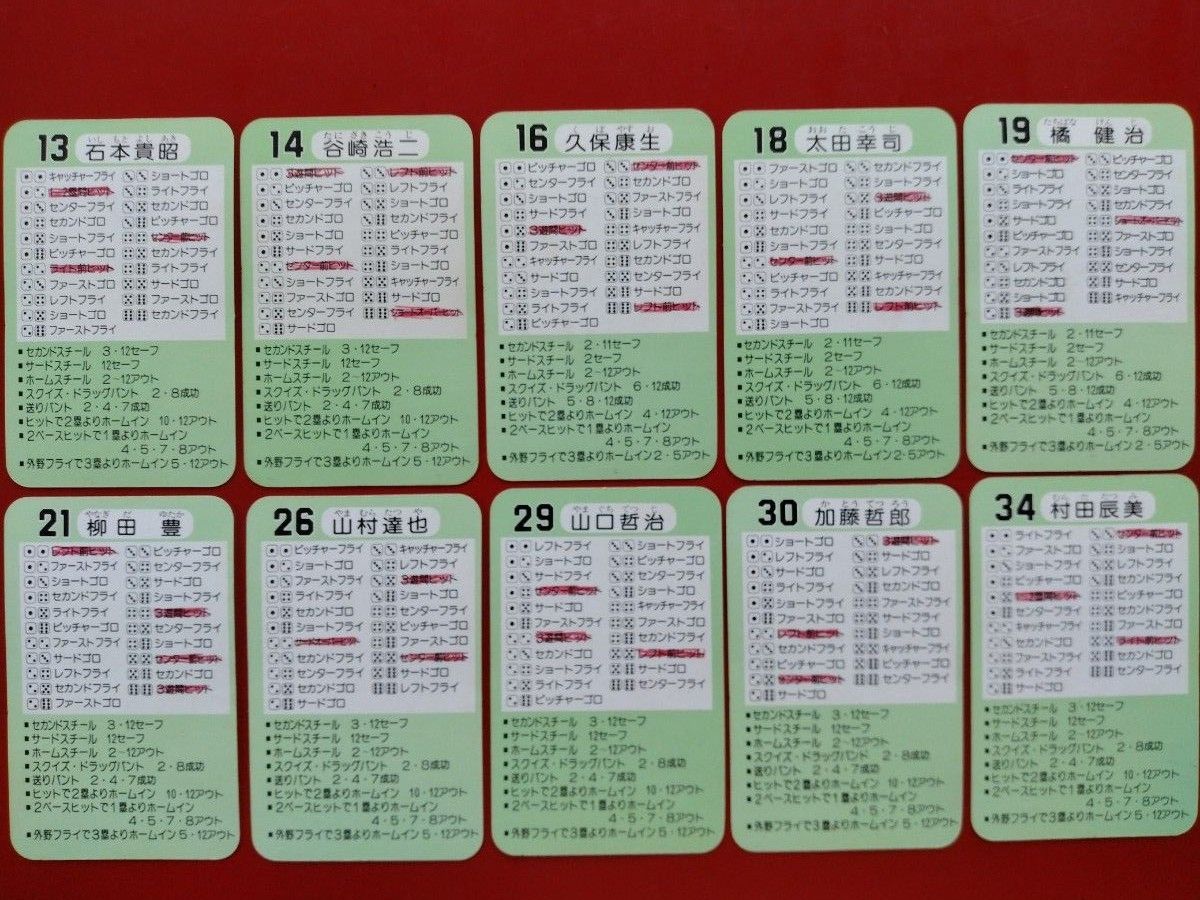 13 石本貴昭
いし もと よし あき
キャッチャーフライ ショートゴロ
ライトフライ
センターフライ セカンドゴロ
セカンドゴロ ピッチャーゴロ
ショートフライ センター前ヒット
ピッチャーゴロ セカンドフライ
ライト前ヒット ライトフライ
ファーストゴロ ショートゴロ
レフトフライ ファーストゴロ
ショートゴロ セカンドフライ
ファーストフライ
■セカンドスチール 3・12セーフ
■サードスチール 12セーフ
■ホームスチール 2−12アウト
■スクイズ・ドラッグバント 2・8成功
■送りバント 2・4・7成功
■ヒットで2塁よりホームイン 10・12アウト
■2ベースヒットで1塁よりホームイン
4・5・7・8アウト
■外野フライで3塁よりホームイン5・12アウト
14 谷崎浩二
たに さき こう じ
3遊間ヒット レフト前ヒット
ピッチャーゴロ レフトフライ
センターフライ ショートゴロ
セカンドゴロ セカンドフライ
ショートゴロ ピッチャーゴロ
サードフライ ライトフライ
センター前ヒット ショートゴロ
ショートフライ キャッチャーフライ
ファーストゴロ サードゴロ
センターフライ ショートオーバーヒット
サードゴロ
■セカンドスチール 3・12セーフ
■サードスチール 12セーフ
■ホームスチール 2−12アウト
■スクイズ・ドラッグバント 2・8成功
■送りバント 2・4・7成功
■ヒットで2塁よりホームイン 10・12アウト
■2ベースヒットで1塁よりホームイン
4・5・7・8アウト
■外野フライで3塁よりホームイン5・12アウト
16 久保康生
く ぼ やす お
ピッチャーゴロ センター前ヒット
センターフライ セカンドゴロ
ショートゴロ ファーストフライ
サードフライ ショートゴロ
3遊間ヒット キャッチャーフライ
ファーストゴロ レフトフライ
キャッチャーフライ セカンドゴロ
サードゴロ センターフライ
ショートフライ サードゴロ
ライトフライ レフト前ヒット
ピッチャーゴロ
■セカンドスチール 2・11セーフ
■サードスチール 2セーフ
■ホームスチール 2−12アウト
■スクイズ・ドラッグバント 6・12成功
■送りバント 5・8・12成功
■ヒットで2塁よりホームイン 4・12アウト
■2ベースヒットで1塁よりホームイン
4・5・7・8アウト
■外野フライで3塁よりホームイン2・5アウト
18 太田幸司
おお た こう じ
ファーストゴロ セカンドフライ
ショートゴロ ショートフライ
レフトフライ 3遊間ヒット
サードゴロ ショートゴロ
セカンドゴロ ピッチャーゴロ
ショートフライ サードフライ
センター前ヒット ショートゴロ
ピッチャーゴロ キャッチャーフライ
ライトフライ サードゴロ
ファーストフライ レフト前ヒット
ショートゴロ
■セカンドスチール 2・11セーフ
■サードスチール 2セーフ
■ホームスチール 2−12アウト
■スクイズ・ドラッグバント 6・12成功
■送りバント 5・8・12成功
■ヒットで2塁よりホームイン 4・12アウト
■2ベースヒットで1塁よりホームイン
4・5・7・8アウト
■外野フライで3塁よりホームイン2・5アウト
19 橘 健治
たちばな けん じ
センター前ヒット ピッチャーゴロ
ショートゴロ センターフライ
ライトフライ ショートゴロ
ショートゴロ セカンドフライ
サードゴロ ショートオーバーヒット
ピッチャーフライ ファーストゴロ
ファーストフライ ショートフライ
レフトフライ センターフライ
セカンドゴロ サードゴロ
ショートゴロ キャッチャーフライ
3遊間ヒット
■セカンドスチール 2・11セーフ
■サードスチール 2セーフ
■ホームスチール 2−12アウト
■スクイズ・ドラッグバント 6・12成功
■送りバント 5・8・12成功
■ヒットで2塁よりホームイン 4・12アウト
■2ベースヒットで1塁よりホームイン
4・5・7・8アウト
■外野フライで3塁よりホームイン2・5アウト
21 柳田 豊
やなぎ だ ゆたか
レフト前ヒット ピッチャーゴロ
ファーストフライ センターフライ
ショートゴロ サードゴロ
セカンドゴロ セカンドフライ
ライトフライ 3遊間ヒット
ピッチャーゴロ センターフライ
ファーストフライ ショートゴロ
サードゴロ センター前ヒット
レフトフライ ショートゴロ
セカンドフライ 3遊間ヒット
ファーストゴロ
■セカンドスチール 3・12セーフ
■サードスチール 12セーフ
■ホームスチール 2−12アウト
■スクイズ・ドラッグバント 2・8成功
■送りバント 2・4・7成功
■ヒットで2塁よりホームイン 10・12アウト
■2ベースヒットで1塁よりホームイン
4・5・7・8アウト
■外野フライで3塁よりホームイン5・12アウト
26 山村達也
やま むら たつ や
ピッチャーフライ キャッチャーフライ
ショートゴロ レフトフライ
ファーストフライ 3遊間ヒット
ライトフライ ショートゴロ
セカンドゴロ センターフライ
ショートゴロ ピッチャーゴロ
ファーストゴロ
セカンドフライ センター前ヒット
サードゴロ サードゴロ
セカンドゴロ レフトフライ
サードフライ
■セカンドスチール 3・12セーフ
■サードスチール 12セーフ
■ホームスチール 2−12アウト
■スクイズ・ドラッグバント 2・8成功
■送りバント 2・4・7成功
■ヒットで2塁よりホームイン 10・12アウト
■2ベースヒットで1塁よりホームイン
4・5・7・8アウト
■外野フライで3塁よりホームイン5・12アウト
29 山口哲治
やま ぐち てつ じ
レフトフライ ショートフライ
ショートゴロ ピッチャーゴロ
サードフライ センターフライ
センター前ヒット ショートゴロ
サードゴロ キャッチャーフライ
ファーストフライ ファーストゴロ
3遊間ヒット セカンドフライ
セカンドゴロ レフト前ヒット
ショートフライ サードゴロ
ライトフライ センターフライ
ピッチャーゴロ
■セカンドスチール 3・12セーフ
■サードスチール 12セーフ
■ホームスチール 2−12アウト
■スクイズ・ドラッグバント 2・8成功
■送りバント 2・4・7成功
■ヒットで2塁よりホームイン 10・12アウト
■2ベースヒットで1塁よりホームイン
4・5・7・8アウト
■外野フライで3塁よりホームイン5・12アウト
30 加藤哲郎
か とう てつ ろう
ショートゴロ 3遊間ヒット
レフトフライ ショートゴロ
サードゴロ レフトフライ
ライトフライ セカンドゴロ
ショートフライ ファーストフライ
ファーストゴロ ショートゴロ
レフト前ヒット センターフライ
セカンドフライ キャッチャーフライ
ピッチャーゴロ ピッチャーフライ
センター前ヒット セカンドゴロ
サードゴロ
■セカンドスチール 3・12セーフ
■サードスチール 12セーフ
■ホームスチール 2−12アウト
■スクイズ・ドラッグバント 2・8成功
■送りバント 2・4・7成功
■ヒットで2塁よりホームイン 10・12アウト
■2ベースヒットで1塁よりホームイン
4・5・7・8アウト
■外野フライで3塁よりホームイン5・12アウト
34 村田辰美
むら た たつ み
ライトフライ センター前ヒット
ファーストゴロ ショートゴロ
ショートフライ レフトフライ
ピッチャーゴロ セカンドフライ
1・2塁間ヒット ピッチャーゴロ
センターフライ セカンドゴロ
キャッチャーフライ ショートフライ
セカンドゴロ ライト前ヒット
ファーストフライ セカンドゴロ
ショートゴロ センターフライ
サードゴロ
■セカンドスチール 3・12セーフ
■サードスチール 12セーフ
■ホームスチール 2−12アウト
■スクイズ・ドラッグバント 2・8成功
■送りバント 2・4・7成功
■ヒットで2塁よりホームイン 10・12アウト
■2ベースヒットで1塁よりホームイン
4・5・7・8アウト
■外野フライで3塁よりホームイン5・12アウト